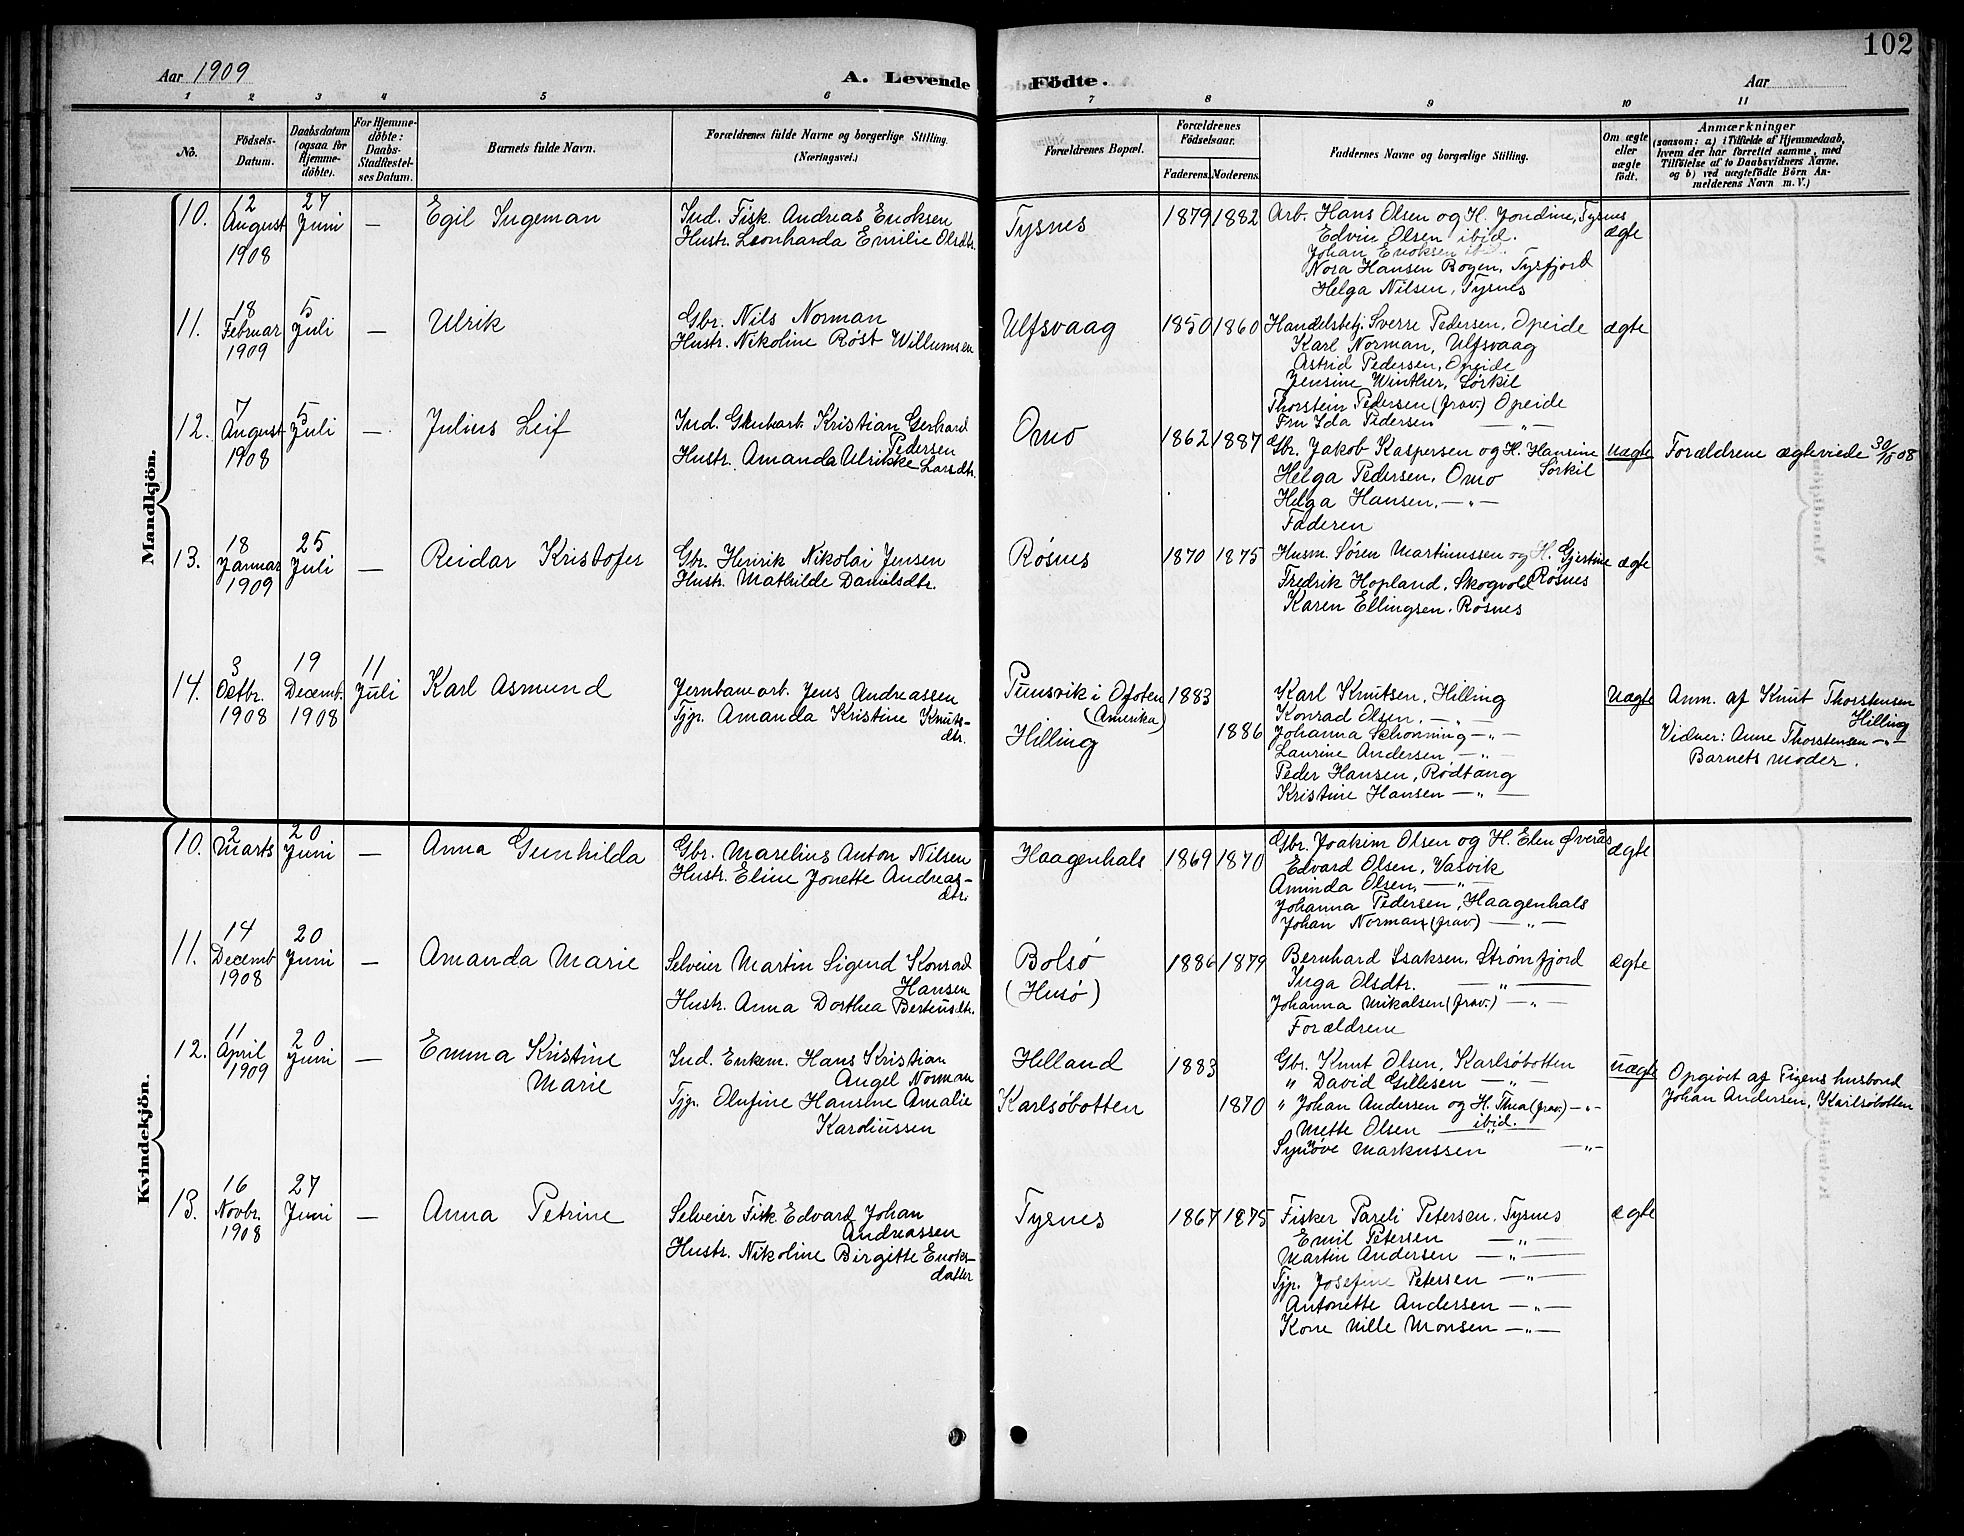 102
Aar 1909
A. Levende Födte.
Aar
1 2 3 4 5 6 7 8 9 10 11
No.
Födsels-
Datum.
Daabsdatum
(ogsaa for
Hjemme-
döbte).
For Hjemme-
döbte:
Daabs-
Stadfæstel-
ses Datum.
Barnets fulde Navn.
Forældrenes fulde Navne og borgerlige Stilling.
(Næringsvei.)
Forældrenes Bopæl.
Forældrenes
Födselsaar.
Faderens. Moderens.
Faddernes Navne og borgerlige Stilling.
Om ægte
eller
uægte
født.
Anmærkninger
(saasom: a) i Tilfælde af Hjemmedaab,
hvem der har forrettet samme, med
Tilföielse af to Daabsvidners Navne,
og b) ved uægtefödte Börn An-
melderens Navn m. V.)
Mandkjön.
10.
12
August
1908
27
Juni
—
Egil Ingeman
Ind. Fisk. Andreas Enoksen
Hustr. Leonharda Emilie Olsdtr.
Tysnes
1879 1882
Arb. Hans Olsen og H. Jondine, Tysnes
Edvin Olsen ibid.
Johan Enoksen ibid.
Nora Hansen Bogen, Tysfjord
Helga Nilsen, Tysnes
ægte
11.
18
Februar
1909
5
Juli
—
Ulrik
Gbr. Nils Norman
Hustr. Nikoline Røst Willumsen
Ulfsvaag
1850 1860
Handelsbetj. Sverre Pedersen, Opeide
Karl Norman, Ulfsvaag
Astrid Pedersen, Opeide
Jensine Winther, Sørkil
Thorstein Pedersen (frav.) Opeide
Fru Ida Pedersen — „ —
ægte
12.
7
August
1908
5
Juli
—
Julius Leif
Ind. Grubearb. Kristian Gerhard
Pedersen
Hustr. Amanda Ulrikke Larsdtr.
Ømo
1862 1887
Gbr. Jakob Kaspersen og H. Hansine
Sørkil
Helga Pedersen, Ømo
Helga Hansen, — „ —
Faderen
uægte
Forældrene ægteviede 30/8 08
13.
18
Januar
1909
25
Juli
—
Reidar Kristofer
Gbr. Henrik Nikolai Jensen
Hustr. Mathilde Danilsdtr.
Røsnes
1870 1875
Husm. Søren Martinussen og H. Gjertine
Røsnes
Fredrik Hopland, Skogvold
Karen Ellingsen, Røsnes
ægte
14.
3
Octbr.
1908
19
Decemb.
1908
11
Juli
Karl Asmund
Jernbanearb. Jens Andreassen
Tjp. Amanda Kristine Knuts-
dtr.
Punsvik i Ofoten
(Amerika)
Hilling
1883
1886
Karl Knutsen, Hilling
Konrad Olsen, — „ —
Johanna Schønning — „ —
Laurine Andersen — „ —
Peder Hansen, Rødtang
Kristine Hansen — „ —
Uægte
Anm. af Knut Thorstensen
Hilling
Vidner: Anne Thorstensen — „ —
Barnets Moder.
Kvindekjön.
10.
2
Marts
20
Juni
—
Anna Gunhilda
Gbr. Marelius Anton Nilsen
Hustr. Eline Jonette Andreas-
dtr.
Haagenhals
1869 1870
Gbr. Joakim Olsen og H. Elen Øverås
Edvard Olsen, Vasvik
Aminda Olsen, — „ —
Johanna Pedersen, Haagenhals
Johan Norman (frav) — „ —
ægte
11.
14
Decemb
1908
20
Juni
—
Amanda Marie
Selveier Martin Sigend Konrad
Hansen
Hustr. Anna Dorthea Berteusdtr.
Bolsø
(Husø)
1886 1879
Bernhard Isaksen, Strømfjord
Inga Olsdtr. — „ —
Johanna Mikalsen (frav.) — „ —
Forældrene
ægte
12.
11
April
1909
20
Juni
—
Emma Kristine
Marie
Ind. Enkem. Hans Kristian
Angel Norman
Tjp. Olufine Hansine Amalie
Karoliussen
Helland
Karlsøbotten
1883
1870
Gbr. Knut Olsen, Karlsøbotten
„ David Gillesen — „ —
„ Johan Andersen og H. Thea (frav.) — „ —
Mette Olsen ibid.
Synnøve Markussen — „ —
uægte
Opgivet af Pigens husbond
Johan Andersen, Karlsøbotten
13.
16
Novbr.
1908
27
Juni
—
Anna Petrine
Selveier Fisk. Edvard Johan
Andreassen
Hustr. Nikoline Birgitte Enoks-
datter
Tysnes
1867 1875
Fisker Pareli Petersen, Tysnes
Emil Petersen — „ —
Martin Andersen — „ —
Tjp. Josefine Petersen — „ —
Antonette Andersen — „ —
Kone Nille Monsen — „ —
ægte